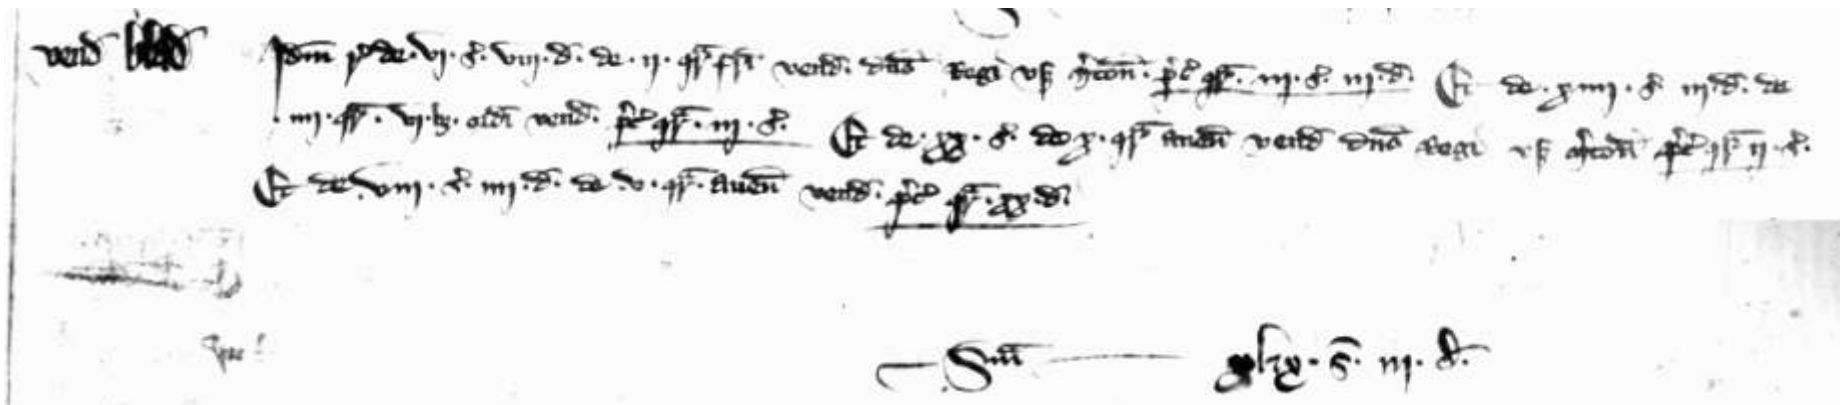 vend blad
Idm r' de · vj · s'. viij · d'. de · ij · qr' fr̄i vend'. dño Regi vs' · p'c' qr'. iij · s'. iiij · d'. Et de · xiiij · s'. iij · d'. de
· iiij · qr'. vj · bz. ordi vend'. p'c' qr'. iij · s'. Et de · xx · s'. de x · qr' aueñ vend' dño Regi vs' p'c' qr' ij · s'.
Et de viij · s'. iiij · d'. de · v · qr'. Aueñ vend'. p'c' qr'. xx · d'.
Sm̄ xlix · s̄. iij · d'.